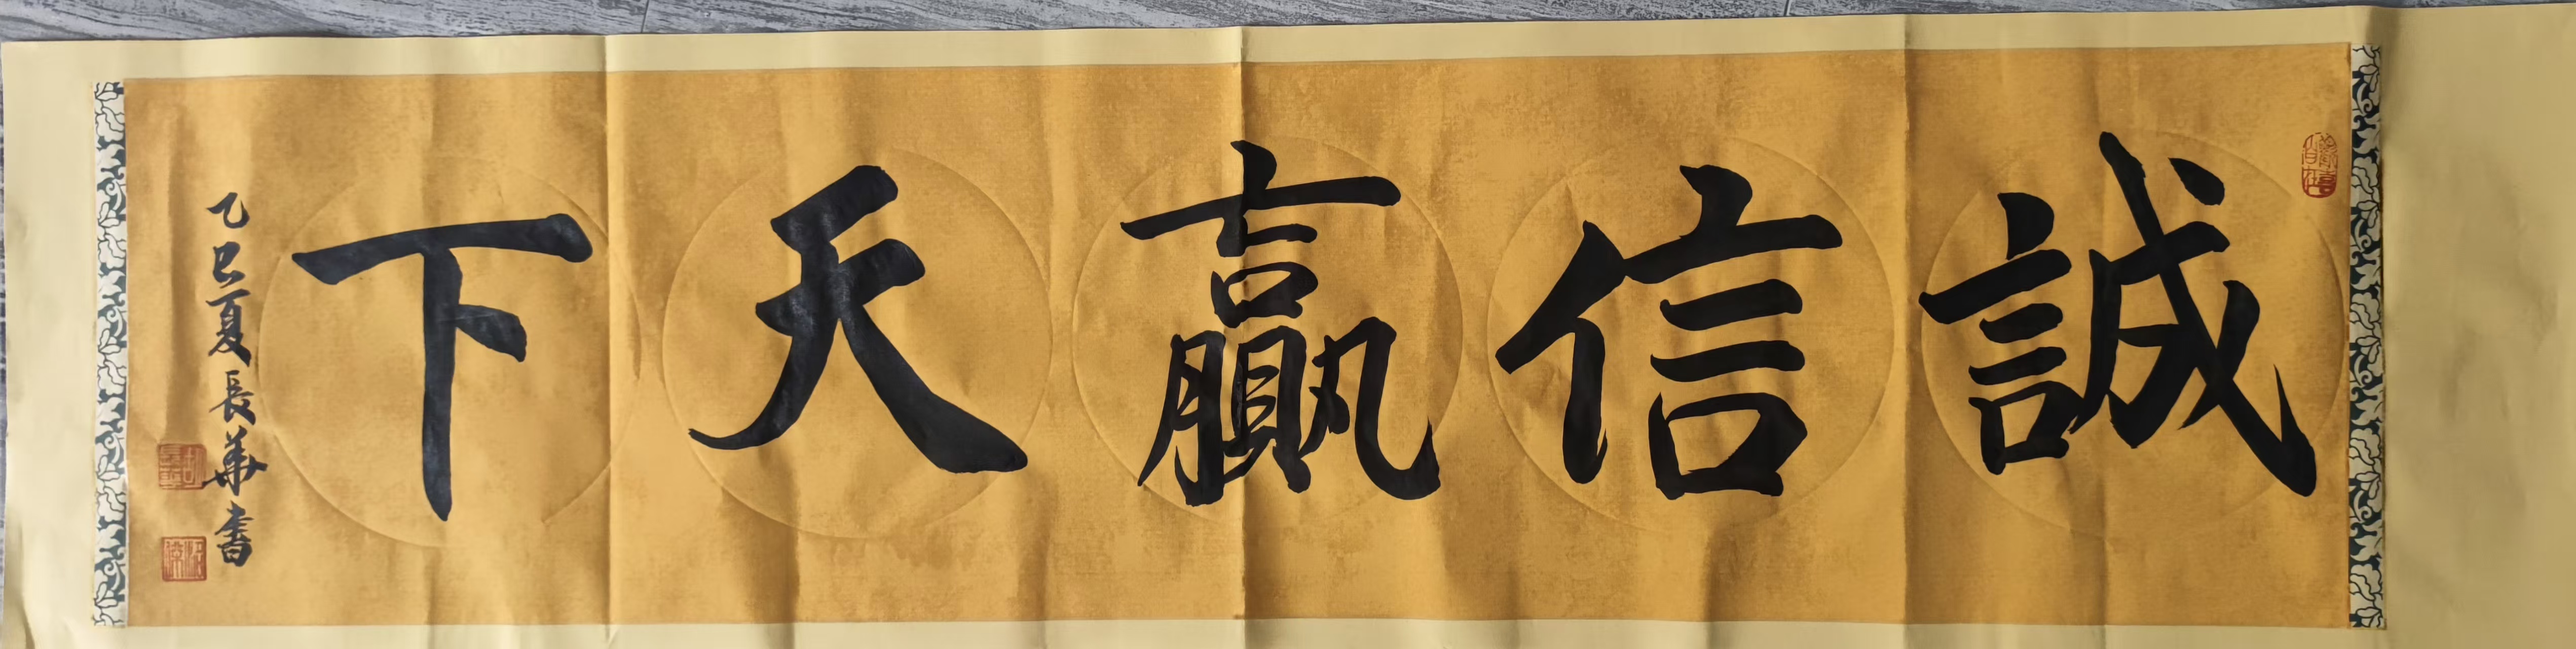 誠信贏天下
乙巳夏長華書